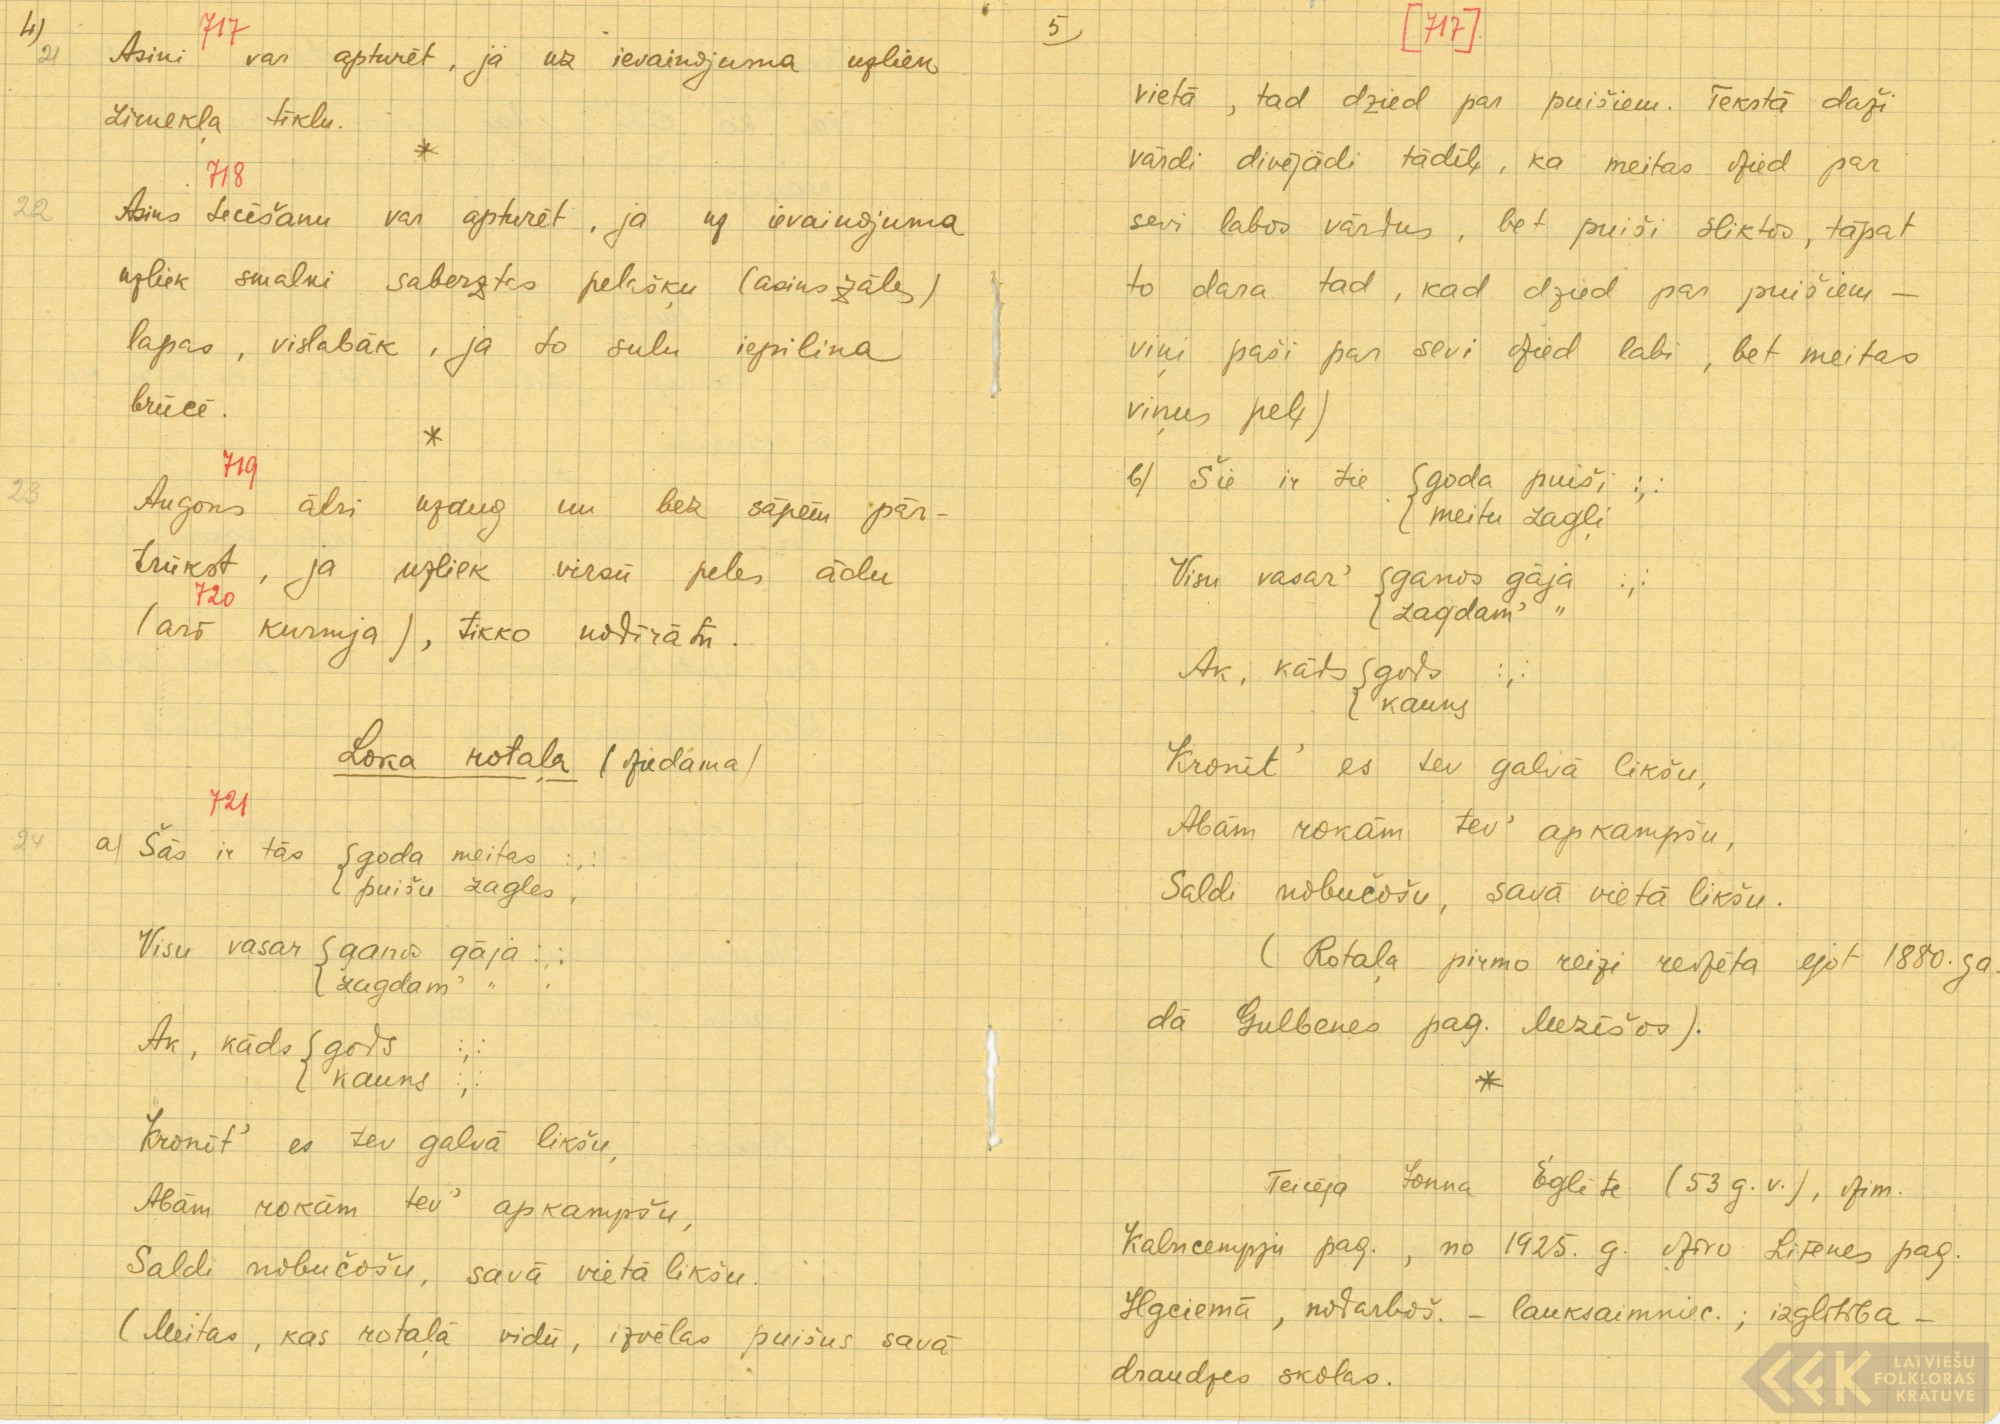 4)
717
21 Asini var apturēt, ja uz ievainojuma uzliek
zirnekļa tīklu.
*
718
22 Asins tecēšanu var apturēt, ja uz ievainojuma
uzliek smalki saberztas pelašķu (asinszāles)
lapas, vislabāk, ja to sulu iepilina
brūcē.
*
719
23 Augons ātri uzaug un bez sāpēm pār-
trūkst, ja uzliek virsū peles ādu
720
(arī kurmja), tikko nodīrātu.
Loka rotaļa (dziedama)
721
24 a) Šās ir tās { goda meitas :,:
{ puišu zagles,
Visu vasar { ganos gāja :,:
{ zagdam' " :
Ak, kāds { gods :,:
{ kauns :,:
Kronīt' es tev galvā likšu,
Abām rokām tev' apkampšu,
Saldi nobučošu, savā vietā likšu.
(Meitas, kas rotaļā vidū, izvēlas puišus savā
5
[717]
vietā, tad dzied par puišiem. Tekstā daži
vārdi divējādi tādēļ, ka meitas dzied par
sevi labos vārdus, bet puiši sliktos, tāpat
to dara tad, kad dzied par puišiem –
viņi paši par sevi dzied labi, bet meitas
viņus peļ)
b) Šie ir tie { goda puiši :,:
{ meitu zagļi
Visu vasar' { ganos gāja :,:
{ zagdam' "
Ak, kāds { gods :,:
{ kauns
Kronīt' es tev galvā likšu,
Abām rokām tev' apkampšu,
Saldi nobučošu, savā vietā likšu.
(Rotaļa pirmo reizi redzēta ejot 1880. ga-
dā Gulbenes pag. Mezīšos).
*
Teicēja Eglīte (53 g. v.), dzim.
Kalncempju pag., no 1925. g. dzīvo Litenes pag.
Ilgciemā, nodarboš. – lauksaimniec.; izglītība –
draudzes skolas.
LATVIEŠU
FOLKLORAS
KRĀTUVE